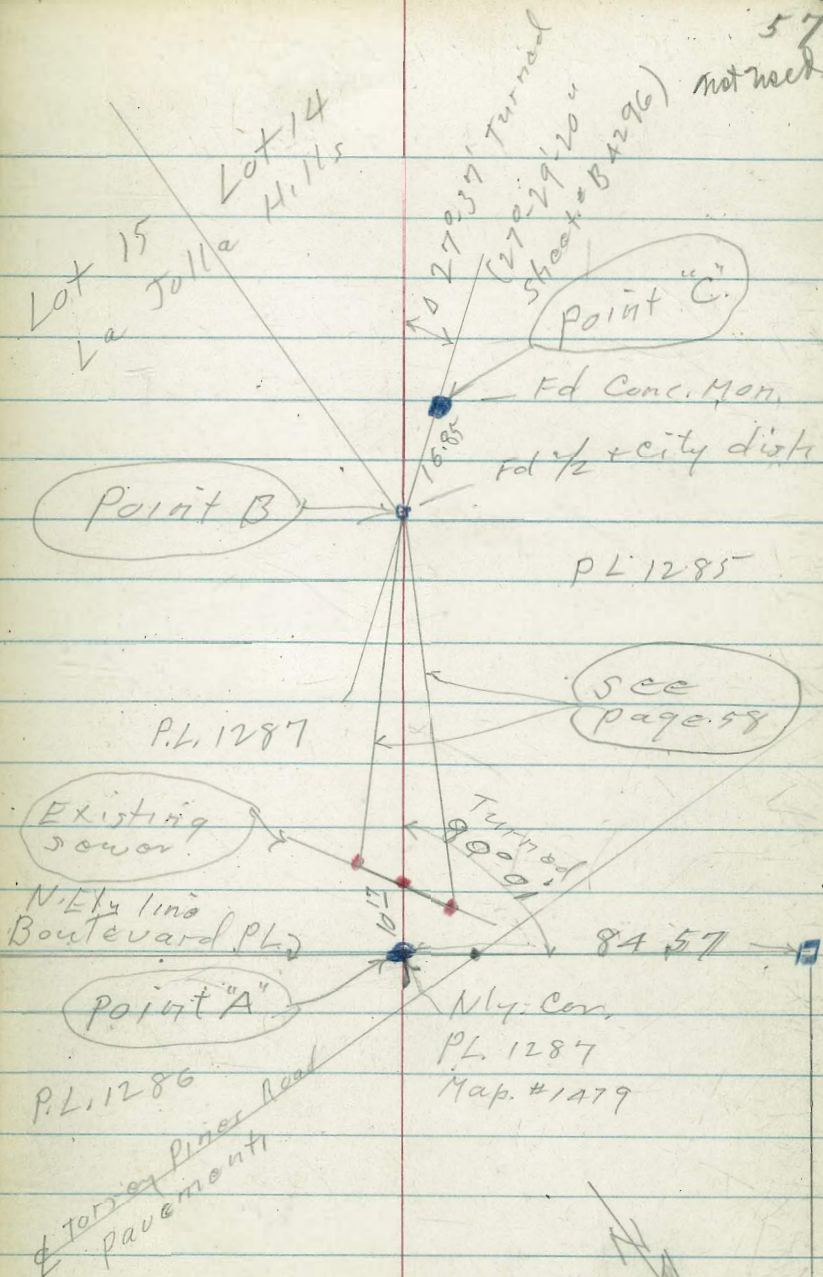 57
not used
Lot 14
Hills
Lot 15
La Jolla
Δ 27°-37' Turned
(27°-29'-20"
Sheet B4296)
Point "C"
Fd Conc. Mon.
16.85
Fd 1/2 + City dish
Point B
P.L. 1285
See
page 58
P.L. 1287
Existing
sewer
Turned
90°01'
10.17
N.Ely line
Boulevard P.L.
84.57
Point "A"
Nly. Cor.
P.L. 1287
Map. #1479
P.L. 1286
℄ Torrey Pines Road
pavement
N